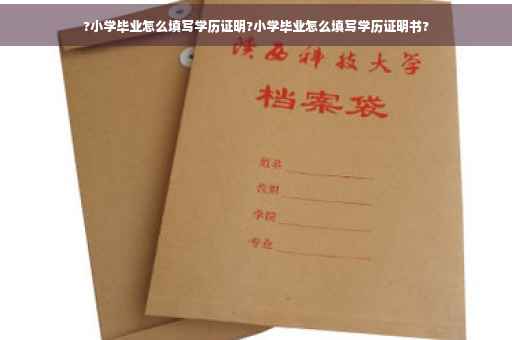 ?小学毕业怎么填写学历证明?小学毕业怎么填写学历证明书?
陕西科技大学
档案袋
姓名
学院
专业